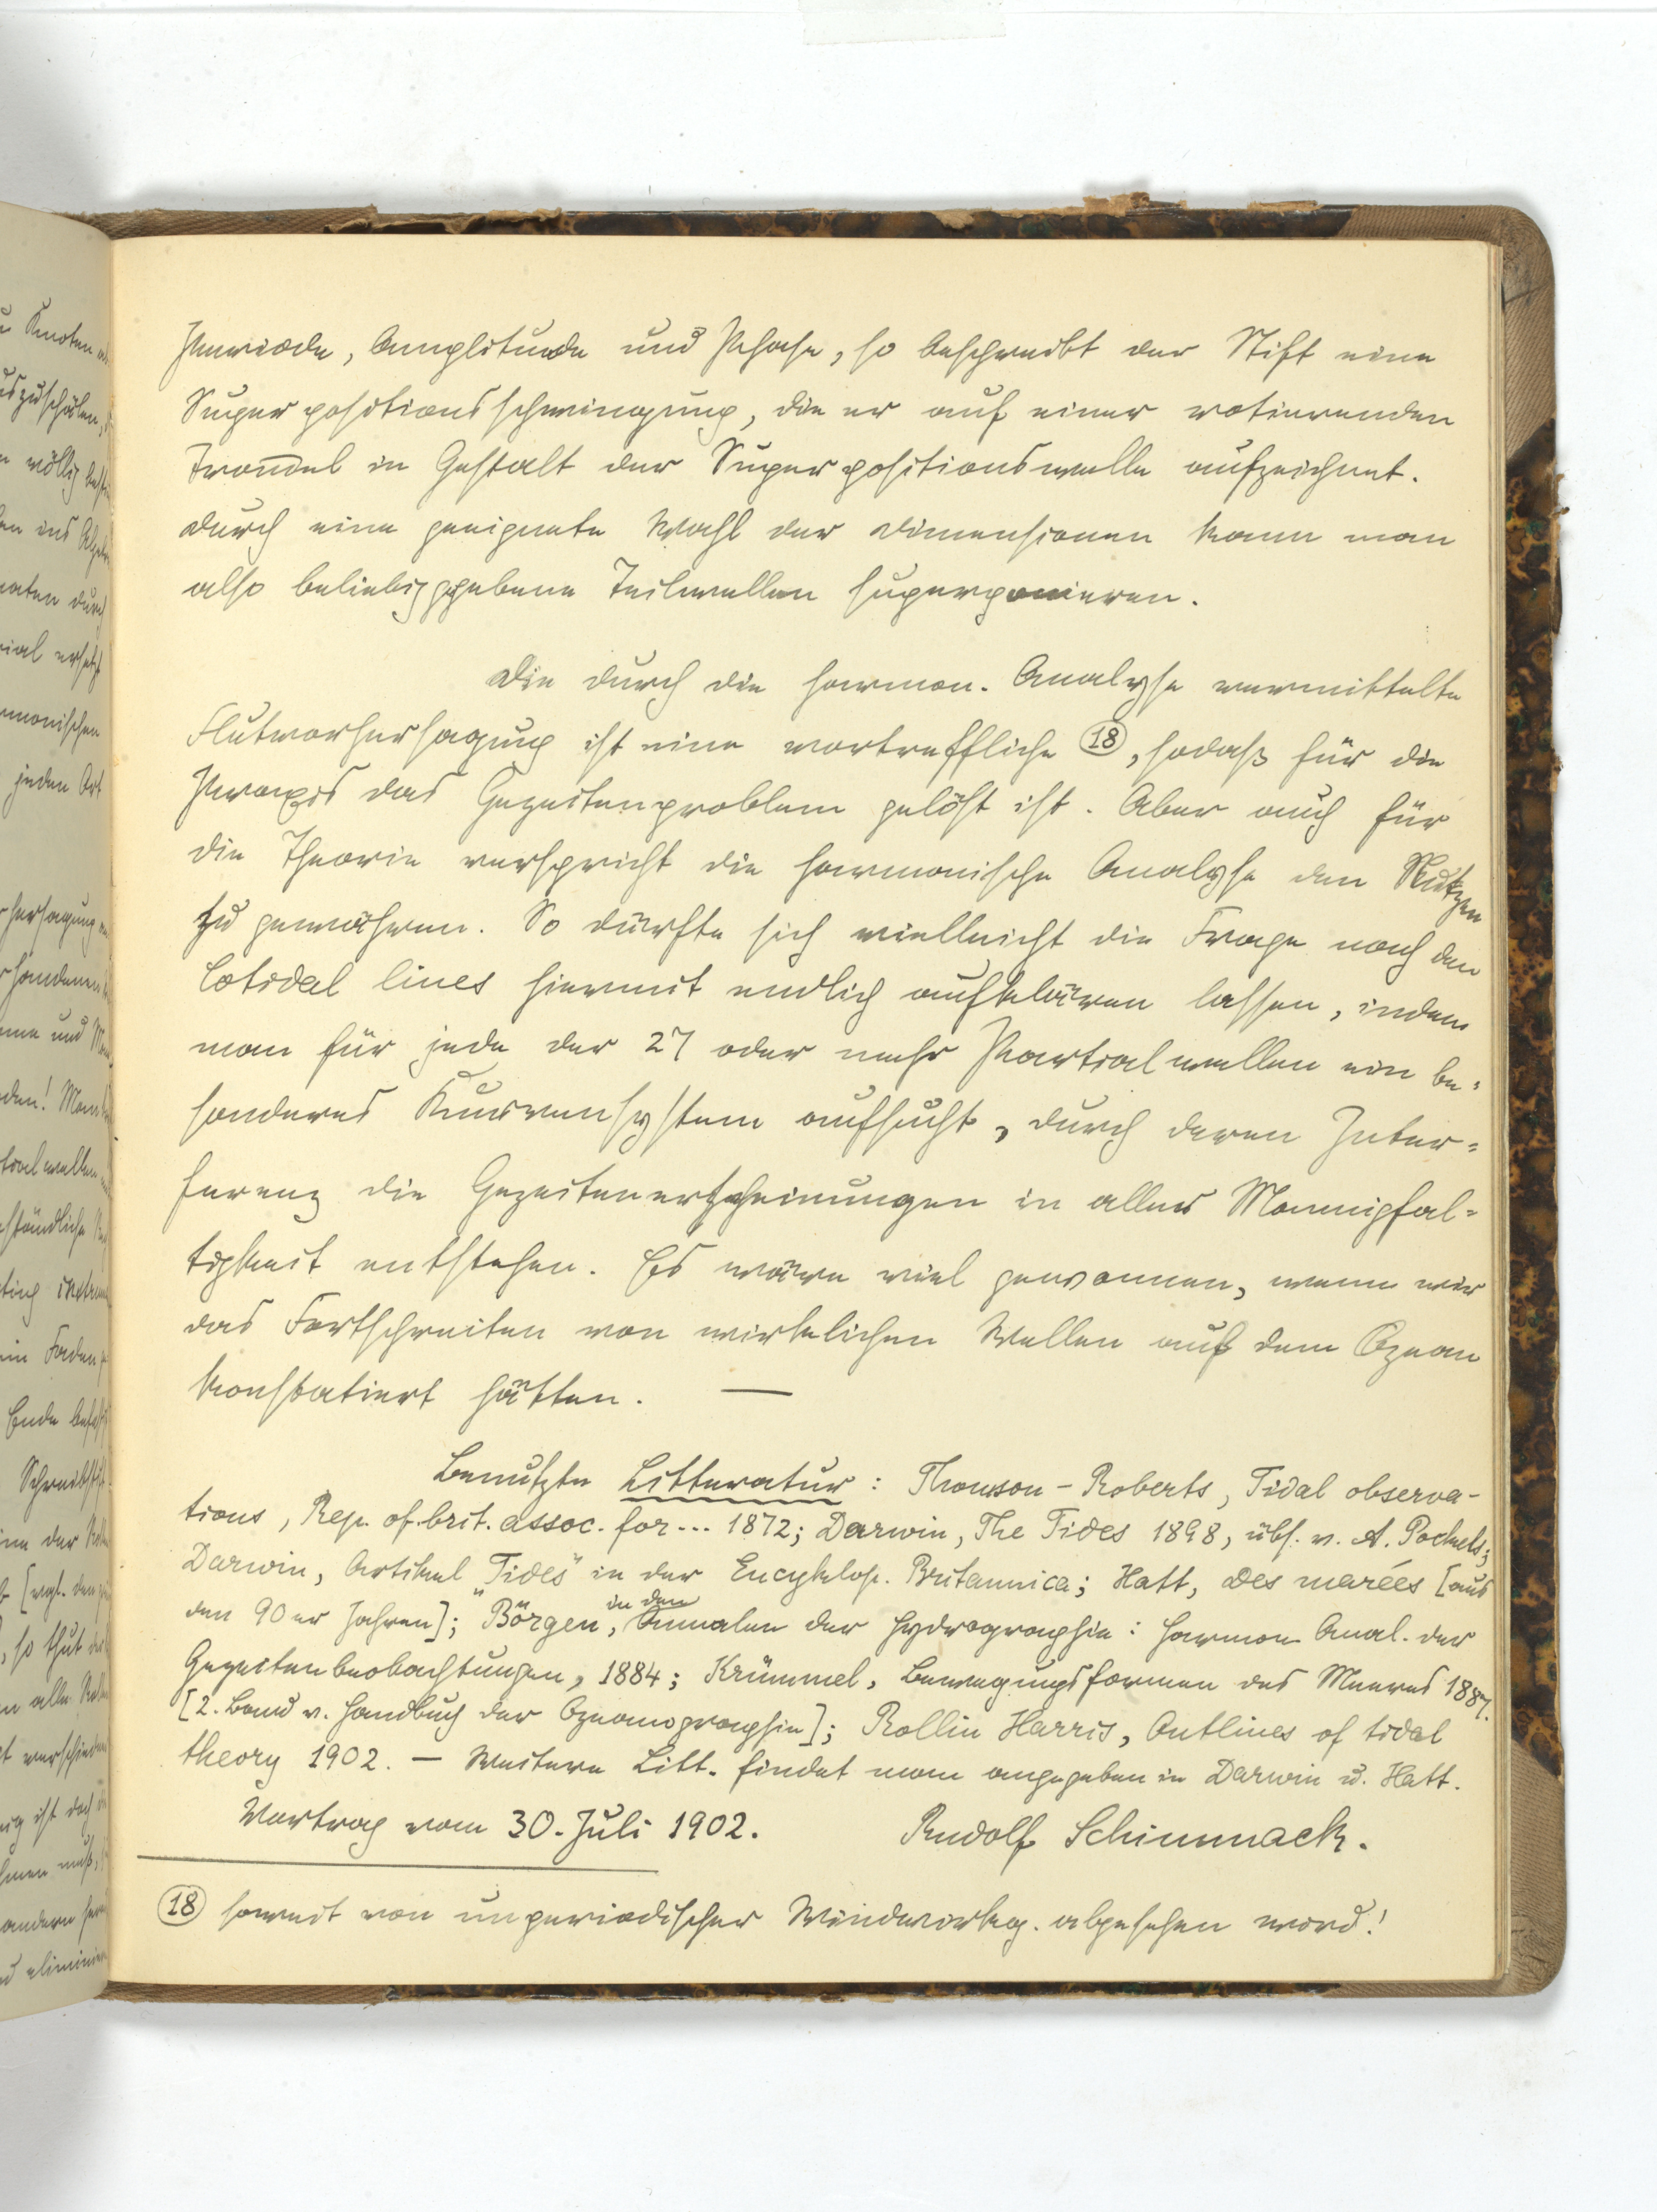 Periode, Amplitude und Phase, so beschreibt der Stift eine
Superpositionsschwingung, die er auf einer rotierenden
Trommel in Gestalt der Superpositionswelle aufzeichnet.
Durch eine geeignete Wahl der Dimensionen kann man
also beliebig gegebene Teilwellen superponieren.
Die durch die harmon. Analyse vermittelte
Flutvorhersagung ist eine vortreffliche (18), sodaß für die
Praxis das Gezeitenproblem gelöst ist. Aber auch für
die Theorie verspricht die harmonische Analyse den Nutzen
zu gewähren. So dürfte sich vielleicht die Frage nach den
Cotidal lines hiermit endlich aufklären lassen, indem
man für jede der 27 oder mehr Partialwellen ein be=
sonderes Kurvensystem aufsucht, durch deren Inter=
ferenz die Gezeitenerscheinungen in aller Mannigfal=
tigkeit entstehen. Es wäre viel gewonnen, wenn wir
das Fortschreiten von wirklichen Wellen auf dem Ozean
konstatiert hätten. —
Benutzte Litteratur: Thomson - Roberts, Tidal observa-
tions, Rep. of. brit. assoc. for... 1872; Darwin, The Tides 1898, übs. v. A. Pockels;
Darwin, Artikel „Tides" in der Encyklop. Britannica; Hatt, Des marées [aus
den 90er Jahren]; Börgen, in den Annalen der Hydrographie: Harmon. Anal. der
Gezeitenbeobachtungen, 1884; Krümmel, Bewegungsformen des Meeres 1887.
[2. Band v. Handbuch der Ozeanographie]; Rollin Harris, Outlines of tidal
theory 1902. — Weitere Litt. findet man angegeben in Darwin u. Hatt.
Vortrag vom 30. Juli 1902. Rudolf Schimmack.
(18) soweit von unperiodischer Windwirkg. abgesehen wird!